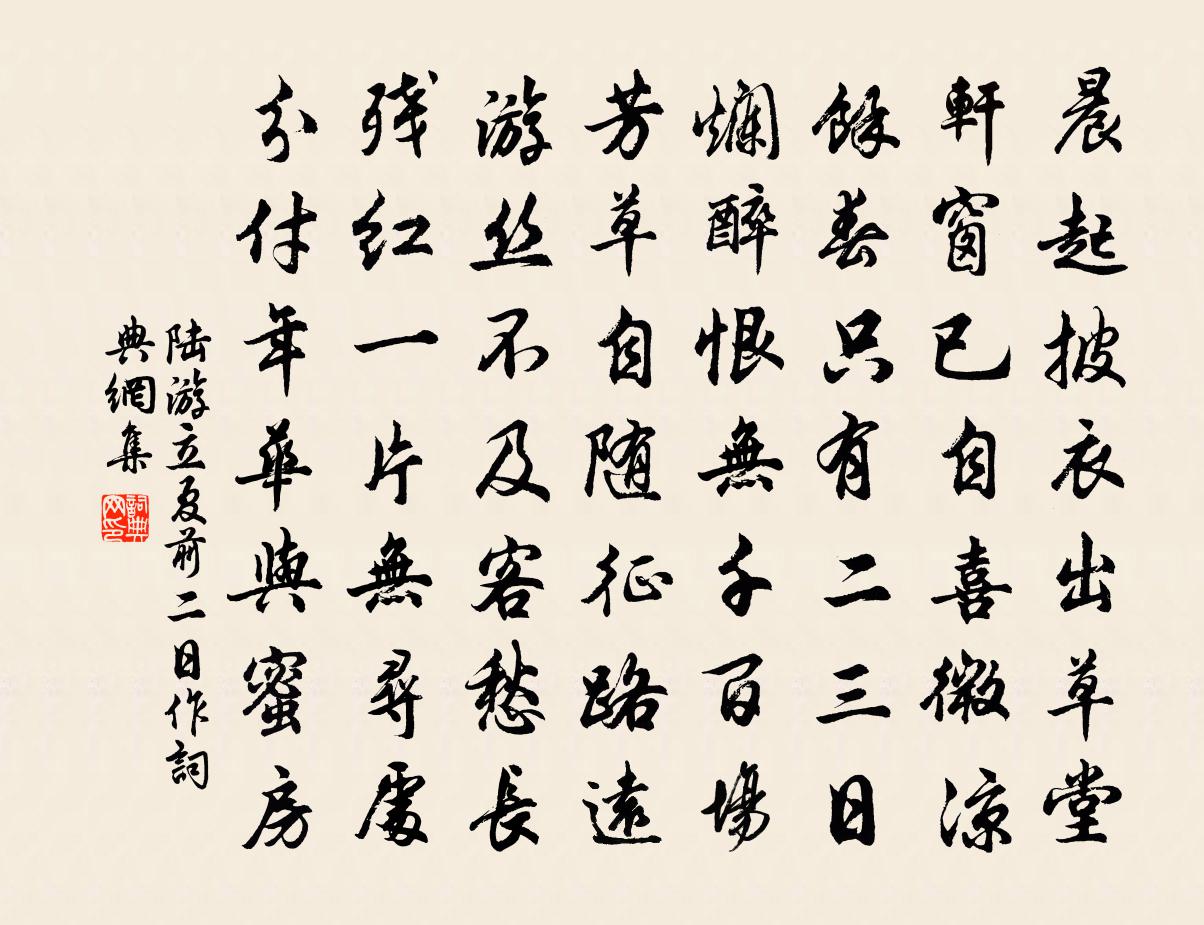 晨起披衣出草堂
軒窗已自喜微涼
餘春只有二三日
爛醉恨無千百場
芳草自随征路遠
游丝不及客愁長
残红一片無尋處
分付年華與蜜房
陆游立夏前二日作詞
典網集
詞典
网印